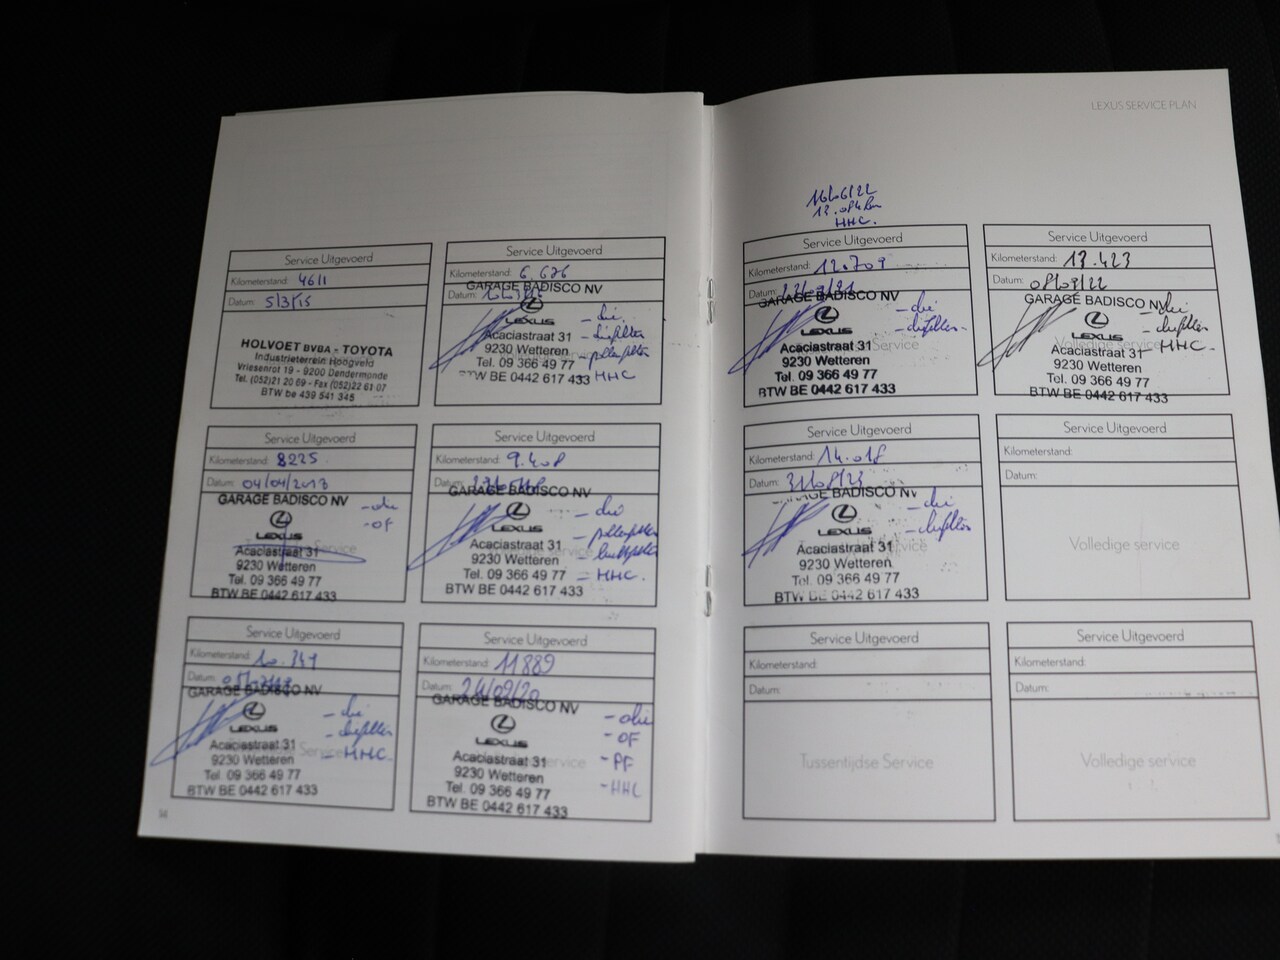 LEXUS SERVICE PLAN
Service Uitgevoerd
Kilometerstand: 4611
Datum: 5/3/15
HOLVOET BVBA - TOYOTA
Industrieterrein Hoogveld
Vriesenrot 19 - 9200 Dendermonde
Tel. (052)21 20 69 - Fax (052)22 61 07
BTW be 439 541 345
Service Uitgevoerd
Kilometerstand: 6.676
Datum:
GARAGE BADISCO NV
LEXUS
Acaciastraat 31
9230 Wetteren
Tel. 09 366 49 77
BTW BE 0442 617 433
- olie
- oliefilter
- pollenfilter
- HHC
Service Uitgevoerd
Kilometerstand: 8225
Datum: 04/04/2018
GARAGE BADISCO NV
LEXUS
Acaciastraat 31
9230 Wetteren
Tel. 09 366 49 77
BTW BE 0442 617 433
- olie
- OF
Service Uitgevoerd
Kilometerstand: 9.408
Datum:
GARAGE BADISCO NV
LEXUS
Acaciastraat 31
9230 Wetteren
Tel. 09 366 49 77
BTW BE 0442 617 433
- olie
- pollenfilter
- luchtfilter
- HHC.
Service Uitgevoerd
Kilometerstand: 10.347
Datum:
GARAGE BADISCO NV
LEXUS
Acaciastraat 31
9230 Wetteren
Tel. 09 366 49 77
BTW BE 0442 617 433
- olie
- oliefilter
- HHC.
Service Uitgevoerd
Kilometerstand: 11889
Datum: 24/09/20
GARAGE BADISCO NV
LEXUS
Acaciastraat 31
9230 Wetteren
Tel. 09 366 49 77
BTW BE 0442 617 433
- olie
- OF
- PF
- HHC
14
HHC.
Service Uitgevoerd
Kilometerstand: 12.709
Datum:
GARAGE BADISCO NV
LEXUS
Acaciastraat 31
9230 Wetteren
Tel. 09 366 49 77
BTW BE 0442 617 433
- olie
- oliefilter
Service Uitgevoerd
Kilometerstand: 13.423
Datum: 08/09/22
GARAGE BADISCO NV
LEXUS
Volledige service
Acaciastraat 31
9230 Wetteren
Tel. 09 366 49 77
BTW BE 0442 617 433
- olie
- oliefilter
- HHC.
Service Uitgevoerd
Kilometerstand: 14.018
Datum: 31/08/23
GARAGE BADISCO NV
LEXUS
Acaciastraat 31
9230 Wetteren
Tel. 09 366 49 77
BTW BE 0442 617 433
- olie
- oliefilter
Service Uitgevoerd
Kilometerstand:
Datum:
Volledige service
Service Uitgevoerd
Kilometerstand:
Datum:
Tussentijdse Service
Service Uitgevoerd
Kilometerstand:
Datum:
Volledige service